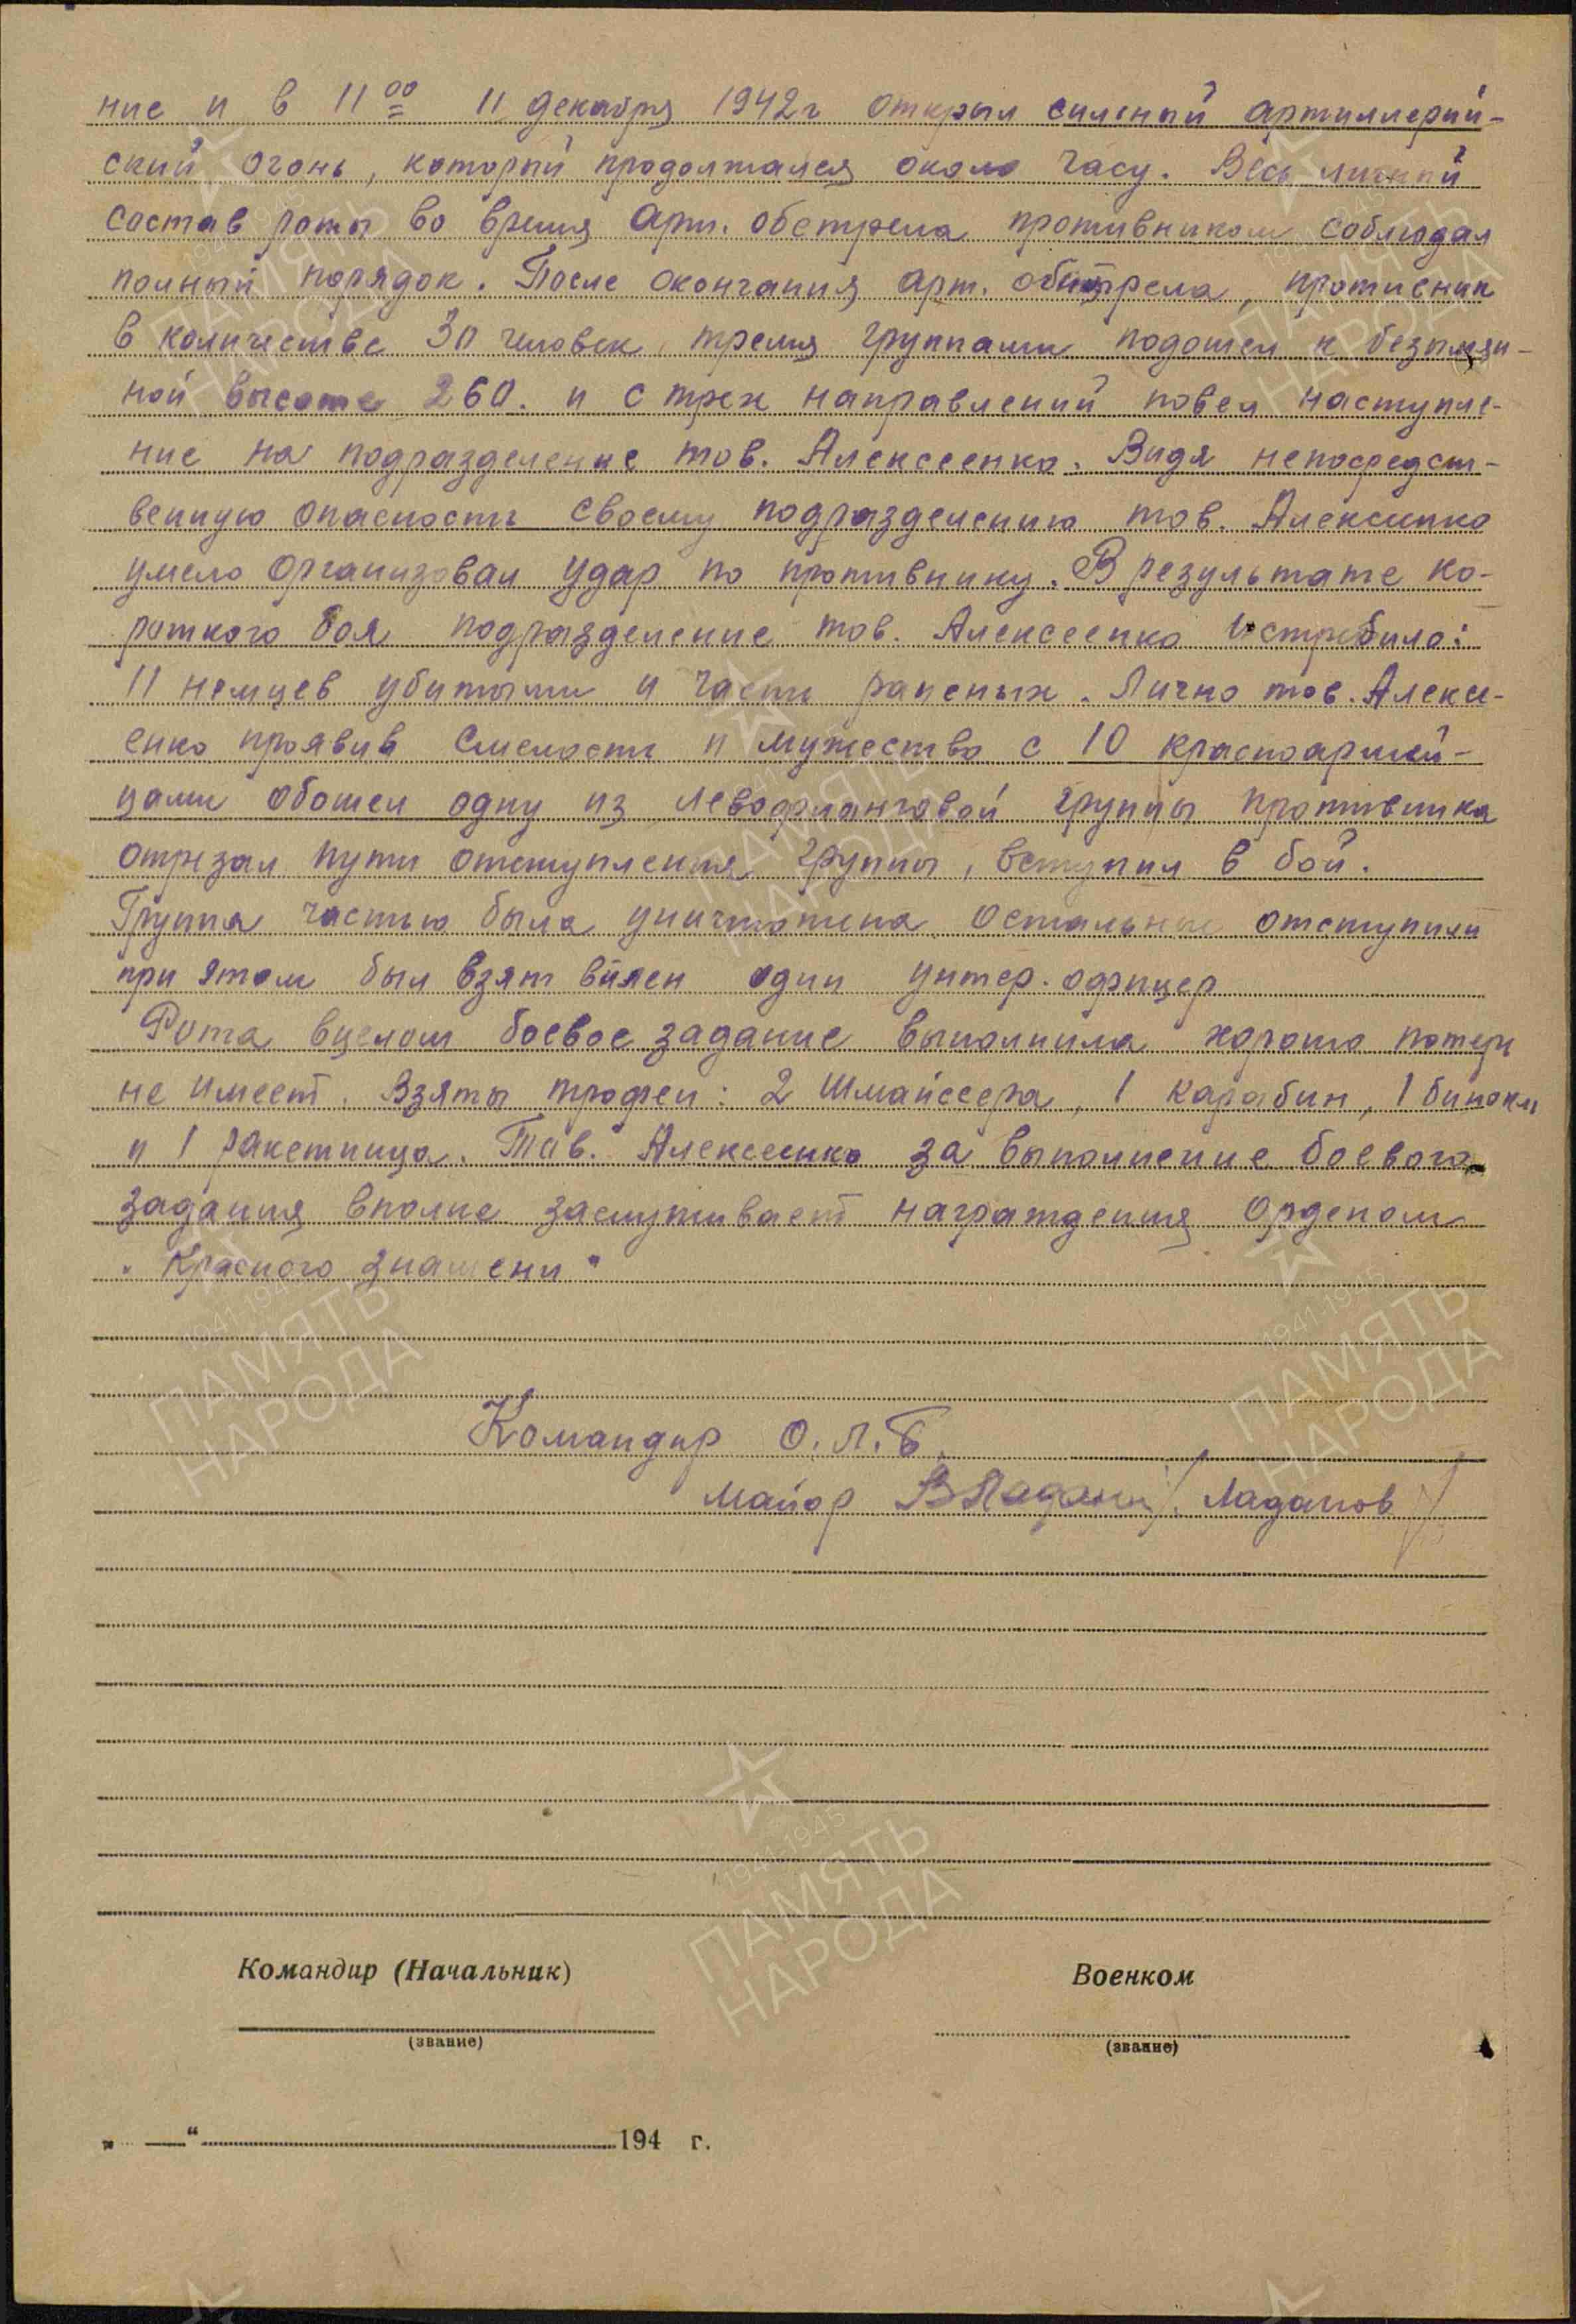 ние и в 11 00 11 декабря 1942г открыл сильный артиллерий-
ский огонь, который продолжался около часу. Весь личный
состав роты во время арт. обстрела противником соблюдал
полный порядок. После окончания арт. обстрела, противник
в количестве 30 человек, тремя группами подошел к безымян-
ной высоте 260. и с трех направлений повел наступле-
ние на подразделение тов. Алексеенко. Видя непосредст-
венную опасность своему подразделению тов. Алексеенко
умело организовал удар по противнику. В результате ко-
роткого боя подразделение тов. Алексеенко истребило:
11 немцев убитыми и часть раненых. Лично тов. Алексе-
енко проявив смелость и мужество с 10 красноармей-
цами обошел одну из левофланговой группы противника
отрезал пути отступления группы, вступил в бой.
Группа частью была уничтожена остальные отступили
при этом был взят в плен один унтер. офицер
Рота вцелом боевое задание выполнила хорошо потерь
не имеет. Взяты трофеи: 2 Шмайссера, 1 карабин, 1 бинокль
и 1 ракетница. Тов. Алексеенко за выполнение боевого
задания вполне заслуживает награждения орденом
"Красного знамени"
Командир О.Л.Б.
майор ВЛадан /Ладанов/
Командир (Начальник)
Военком
(звание)
(звание)
„ — “ 194 г.
1941-1945
ПАМЯТЬ
НАРОДА